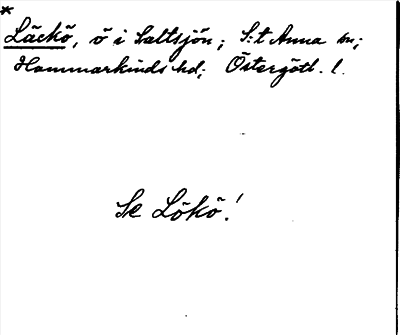 *
Läckö, ö i Saltsjön; S:t Anna sn;
Hammarkinds hd; Östergötl. l.
Se Lökö!